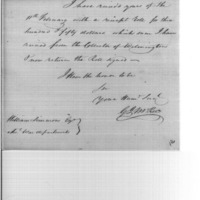 I have received yours of the
10th February with a receipt Roll for two
hundred & fifty dollars which sum I have
received from the Collector of Wilmington
I now return the Roll signed
I have the honor to be
Sir
your
William Simmons Esqr
War department